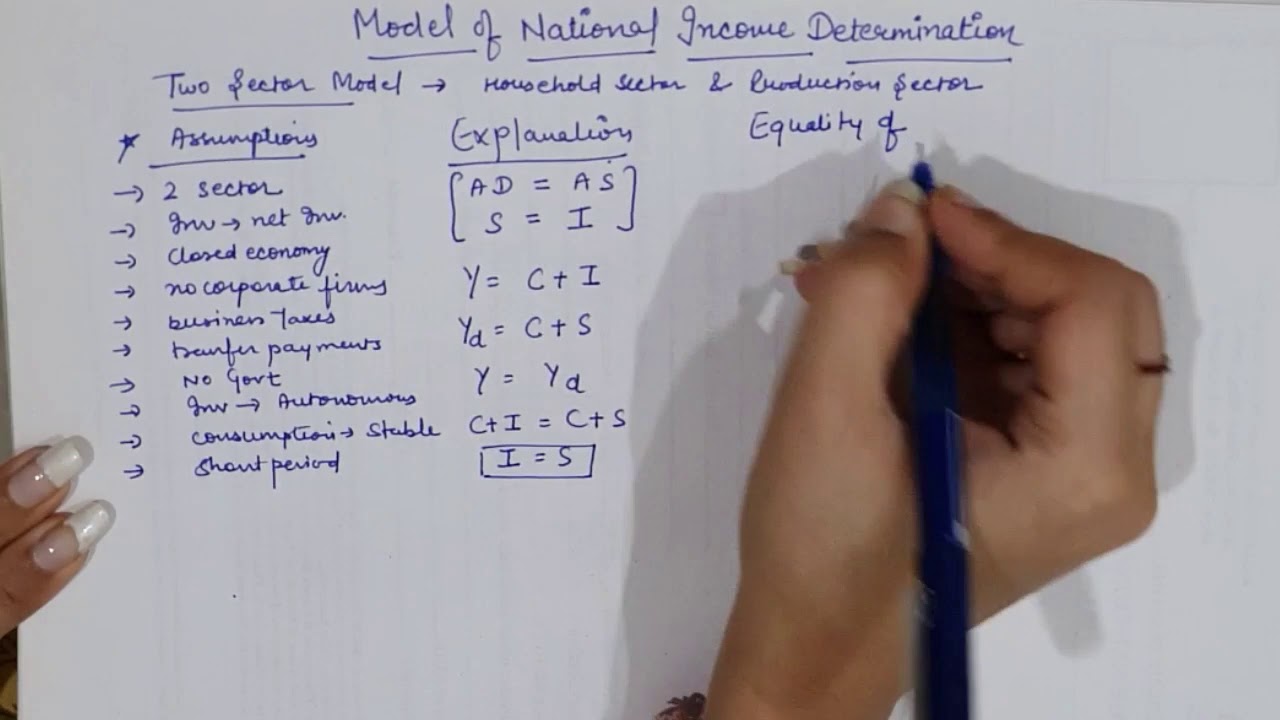 Model of National Income Determination
Two Sector Model → Household Sector & Production Sector
* Assumptions
→ 2 sector
→ Inv → net Inv.
→ Closed economy
→ no corporate firms
→ business taxes
→ transfer payments
→ No Govt
→ Inv → Autonomous
→ consumption → Stable
→ Short period
Explanation
[AD = AS
S = I]
Y = C + I
Yd = C + S
Y = Yd
C + I = C + S
I = S
Equality of